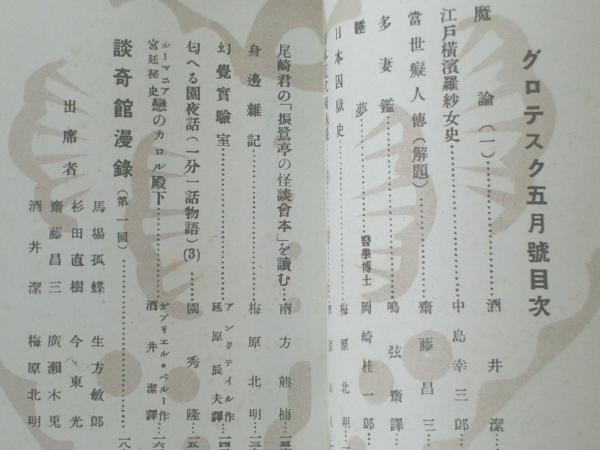 グロテスク五月號目次
魔論(一)………酒井潔
江戶橫濱羅紗女史………中島幸三郎
當世癡人傳(解題)………齋藤昌三
多妻鑑………鳴弦齋譯
睡夢………醫學博士 岡崎桂一郎
日本囚獄史………梅原北明
尾崎君の「振鷺亭の怪談會本」を讀む…南方熊楠
身邊雜記………梅原北明
幻覺實驗室………アンクテイル作 延原辰夫譯
匂へる園夜話(一分一話物語)(3)…園秀隆
ルーマニア宮廷秘史 戀のカロル殿下………ガブリエル・ペルー作 酒井潔譯
談奇館漫錄(第一回)………
出席者
馬場孤蝶 生方敏郎
杉田直樹 今東光
齋藤昌三 廣瀨木兎
酒井潔 梅原北明